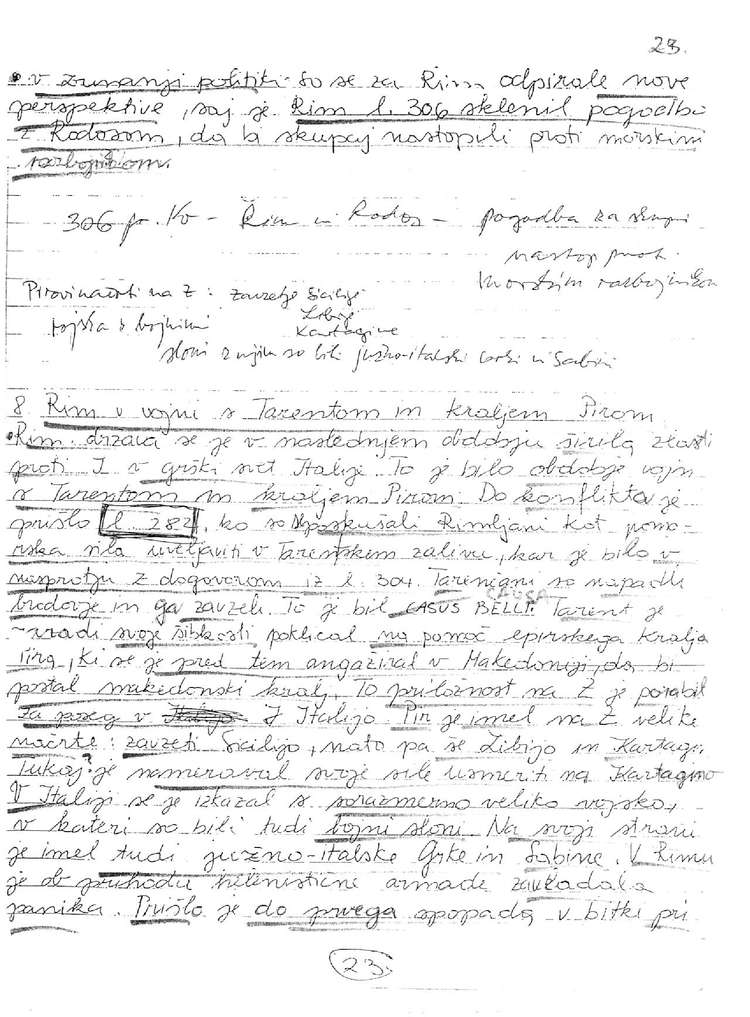 23.
• v zunanji politiki so se za Rim odpirale nove
perspektive, saj je Rim l. 306 sklenil pogodbo
z Rodosom, da bi skupaj nastopili proti morskim
razbojnikom.
306 pr. Kr – Rim in Rodos – pogodba za skupni
nastop proti
morskim razbojnikom
Pirovi načrti na Z : zavzetje Sicilije
Libije
Kartagine
vojska z bojnimi
sloni z njim so bili južno-italski Grki in Sabini
8 Rim v vojni s Tarentom in kraljem Pirom
• Rim. država se je v naslednjem obdobju širila zlasti
proti J v grški svet Italije. To je bilo obdobje vojn
s Tarentom in kraljem Pirom. Do konflikta je
prišlo l. 282, ko so poskušali Rimljani kot pomo-
rska sila uveljaviti v Tarentskem zalivu, kar je bilo v
nasprotju z dogovorom iz l. 304. Tarenčani so napadli
CAUSA
brodovje in ga zavzeli. To je bil CASUS BELLI. Tarent je
zradi svoje šibkosti poklical na pomoč epirskega kralja
Pira, ki se je pred tem angažiral v Makedoniji, da bi
postal makedonski kralj. To priložnost na Z je porabil
za poseg v J Italijo. Pir je imel na Z velike
načrte: zavzeti Sicilijo, nato pa še Libijo in Kartag.
Tukaj? je nameraval svoje sile usmeriti na Kartagino
V Italiji se je izkazal s sorazmerno veliko vojsko,
v kateri so bili tudi bojni sloni. Na svoji strani
je imel tudi južno-italske Grke in Sabine. V Rimu
je ob prihodu helenistične armade zavladala
panika. Prišlo je do prvega spopada v bitki pri
23.